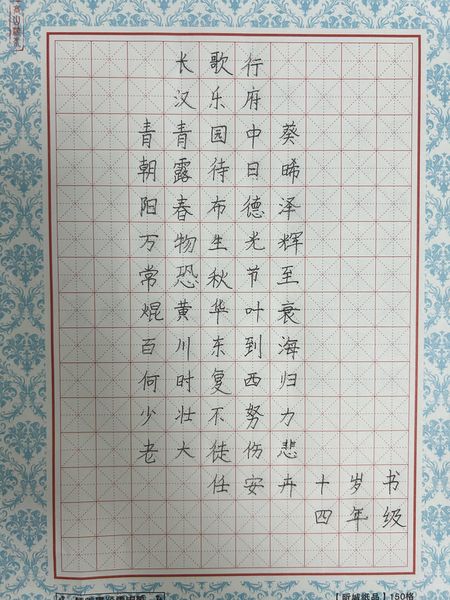 长歌行
汉乐府
青青园中葵
朝露待日晞
阳春布德泽
万物生光辉
常恐秋节至
焜黄华叶衰
百川东到海
何时复西归
少壮不努力
老大徒伤悲
任安卉十岁书
四年级
纸品】150格